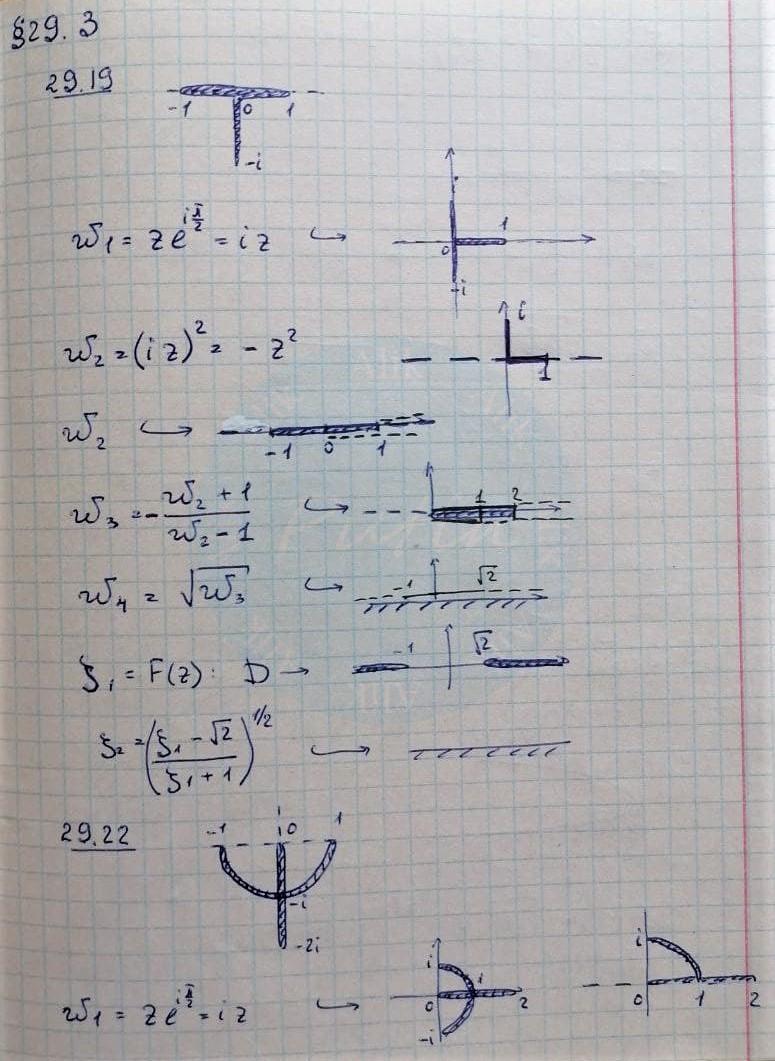 §29.3
29.19
-1 0 1
-i
w₁ = z e^{iπ/2} = iz ↪ 0 1 -i
w₂ = (iz)² = -z² i 1
w₂ ↪ -1 0 1
w₃ = -\frac{w₂ + 1}{w₂ - 1} ↪ 1 2
w₄ = √w₃ ↪ -1 √2
ξ₁ = F(z): D → -1 √2
ξ₂ = (\frac{ξ₁ - √2}{ξ₁ + 1})^{1/2} ↪
29.22 -1 0 1
-i
-2i
w₁ = z e^{iπ/2} = iz ↪ i 0 1 2 -i i 0 1 2